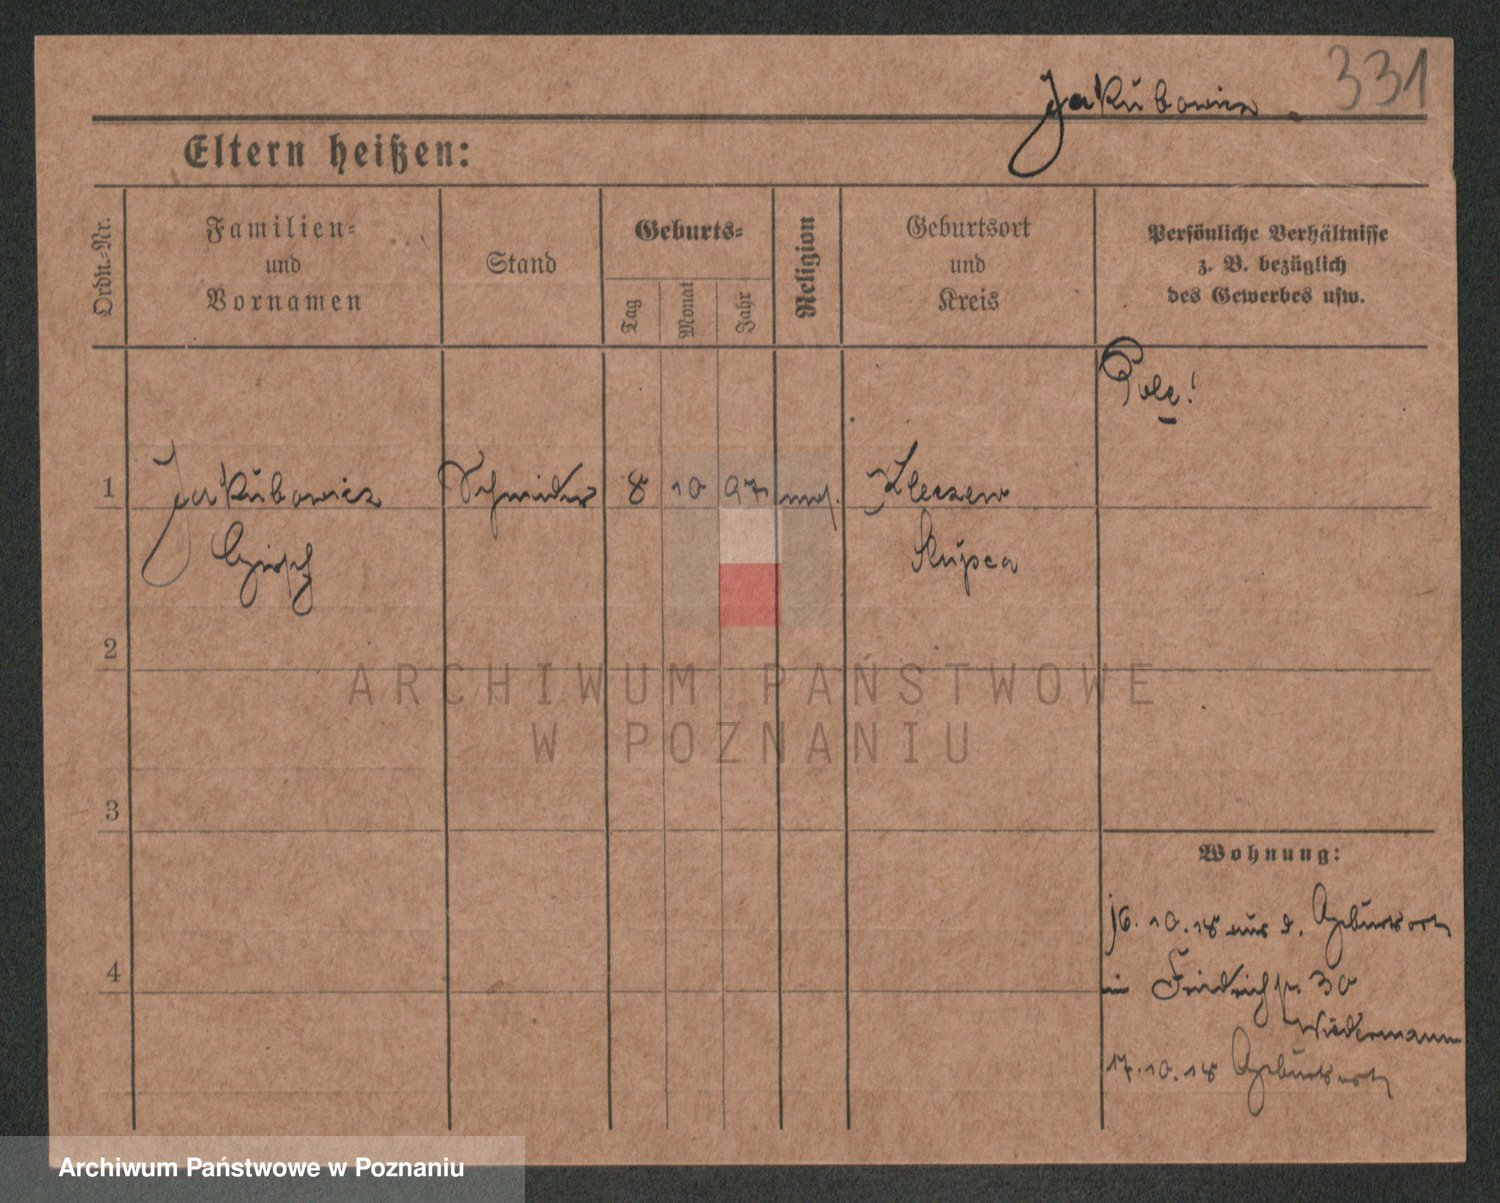 331
Jakubowicz.
Eltern heißen:
Ordn.-Nr.
Familien-
und
Vornamen
Stand
Geburts-
Tag
Monat
Jahr
Religion
Geburtsort
und
Kreis
Persönliche Verhältnisse
z. B. bezüglich
des Gewerbes usw.
Pole!
1 Jakubowicz Schneider 8 10 97 mos. Kleczew
Hirsch Slupca
2
3
4
Wohnung:
16.10.18 aus d. Geburtsort
in Friedrichstr. 30
Wiedermann
17.10.18 Geburtsort
ARCHIWUM PAŃSTWOWE
W POZNANIU
Archiwum Państwowe w Poznaniu